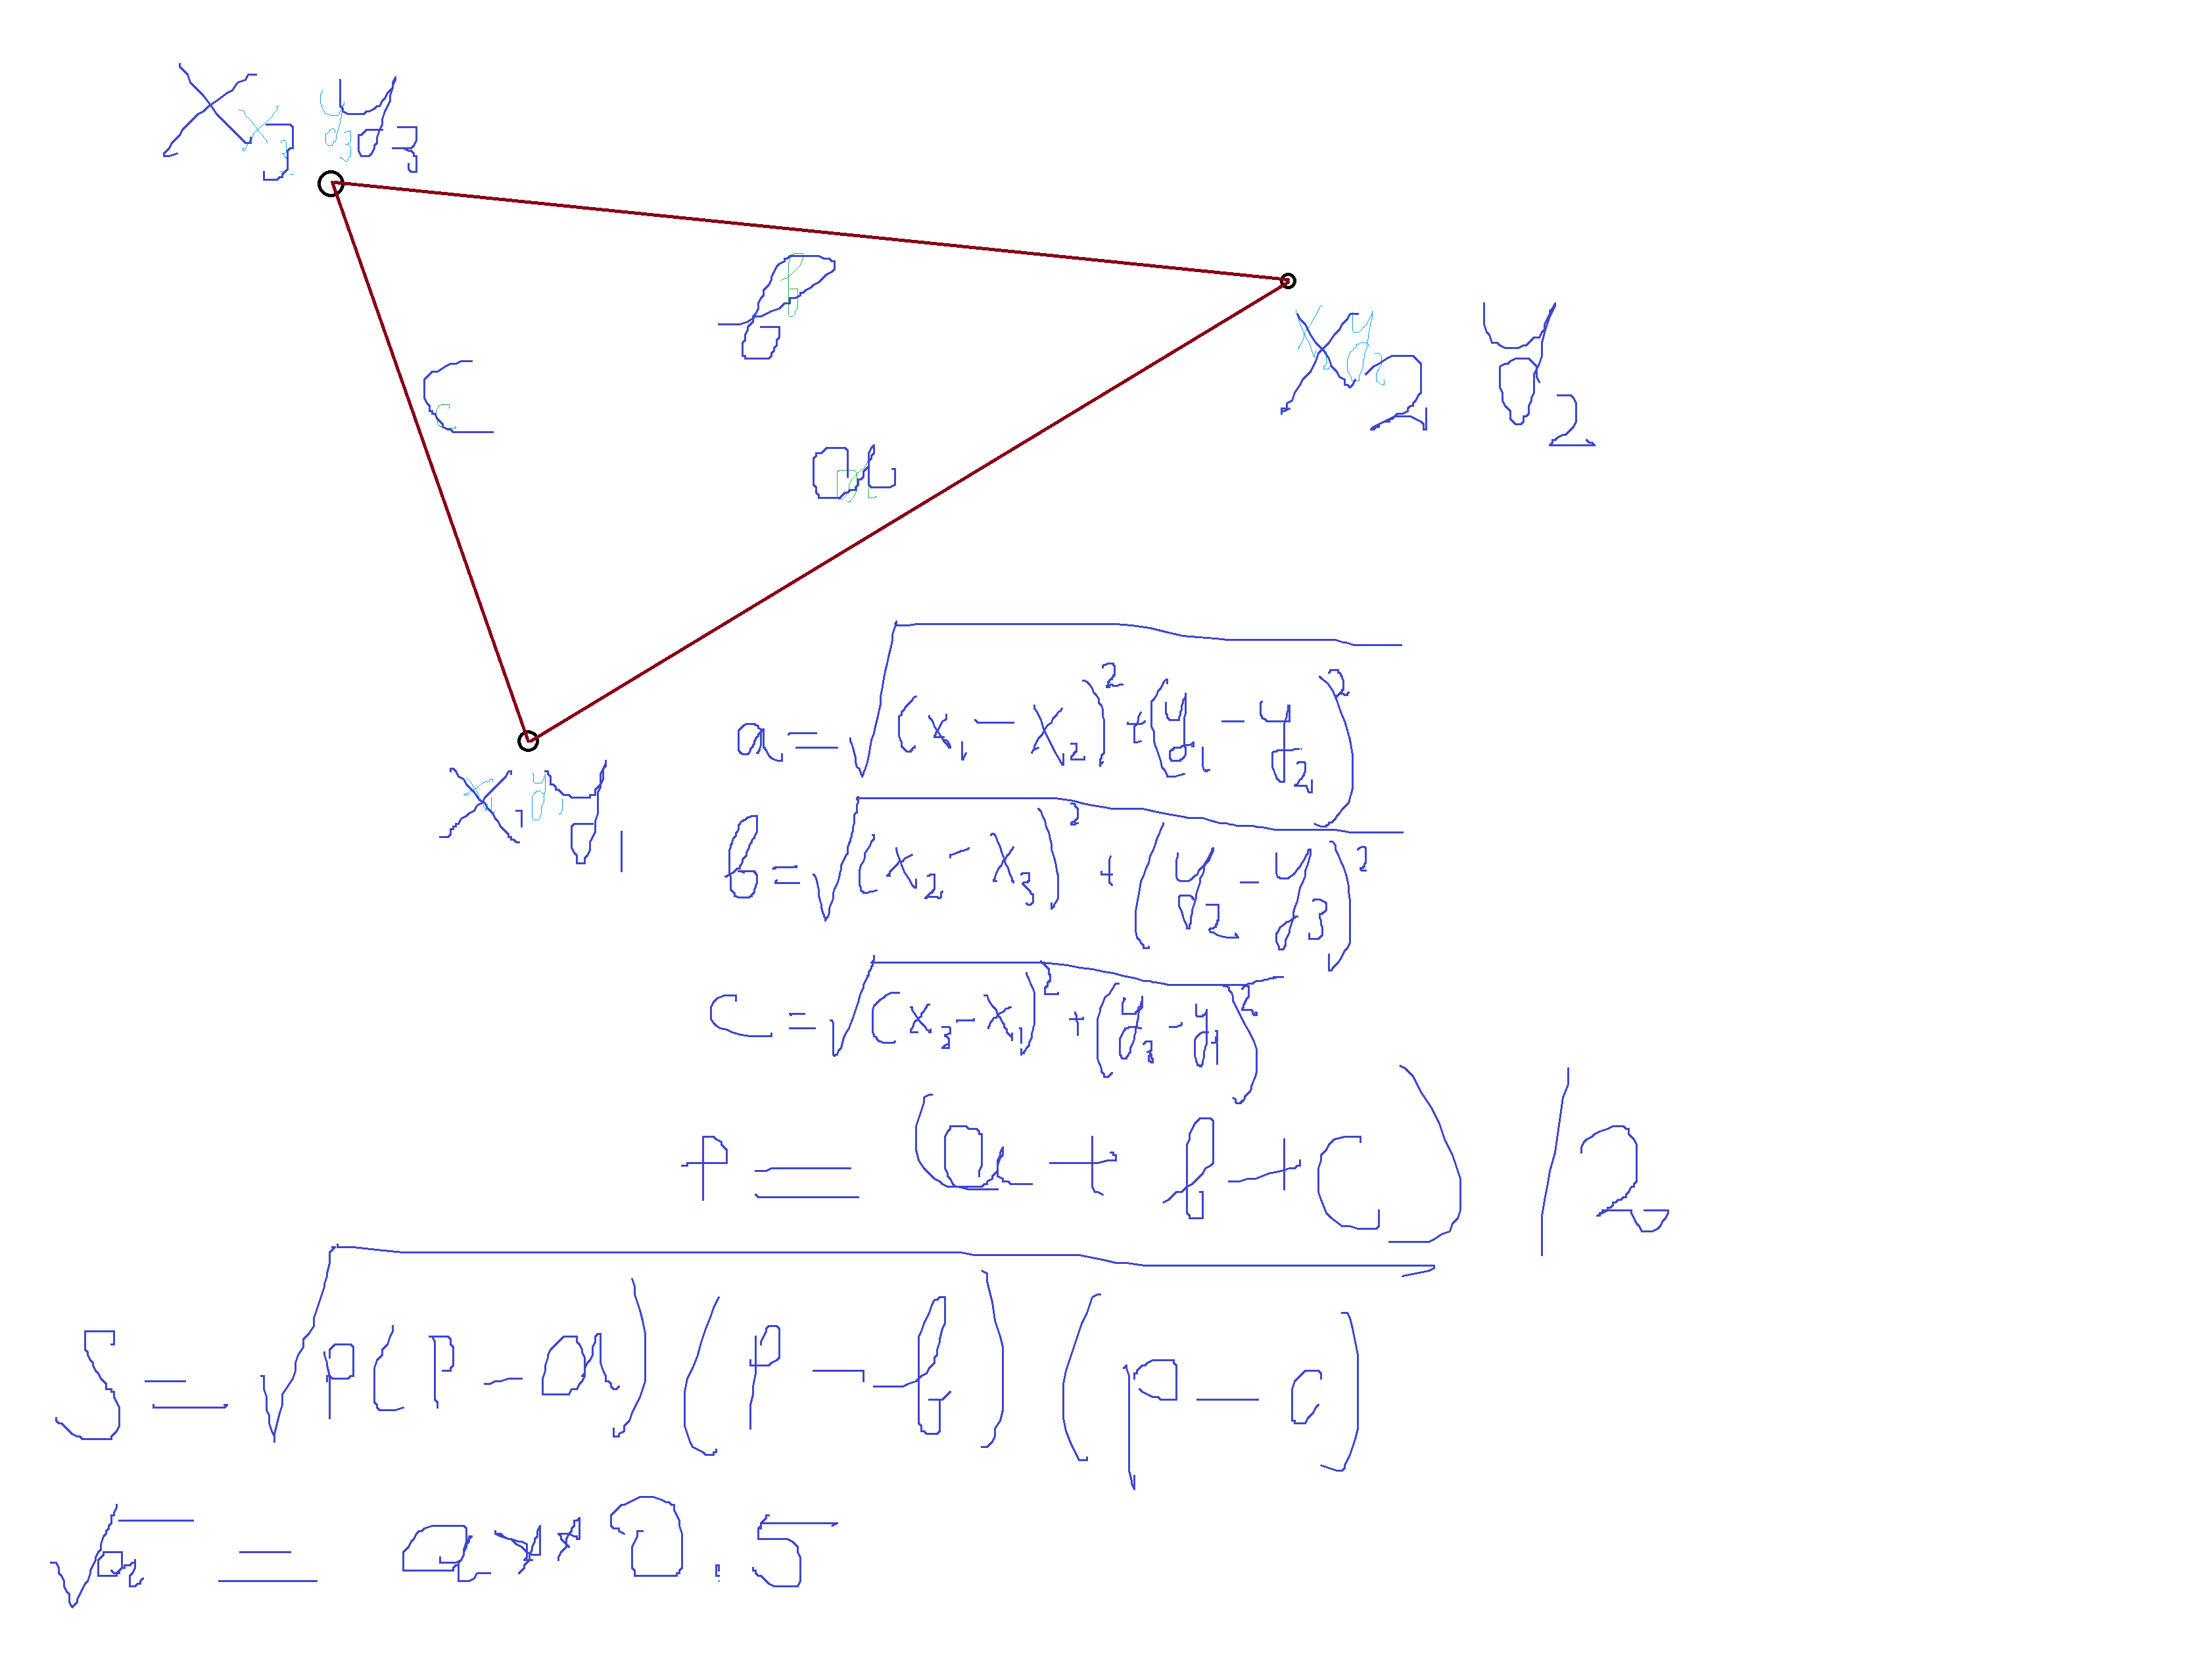 x₃ y₃
b
x₂ y₂
c
a
x₁ y₁
a = √(x₁ - x₂)² + (y₁ - y₂)²
b = √(x₂ - x₃)² + (y₂ - y₃)²
c = √(x₃ - x₁)² + (y₃ - y₁)²
p = (a + b + c) / 2
S = √p(p - a)(p - b)(p - c)
√a = a**0.5